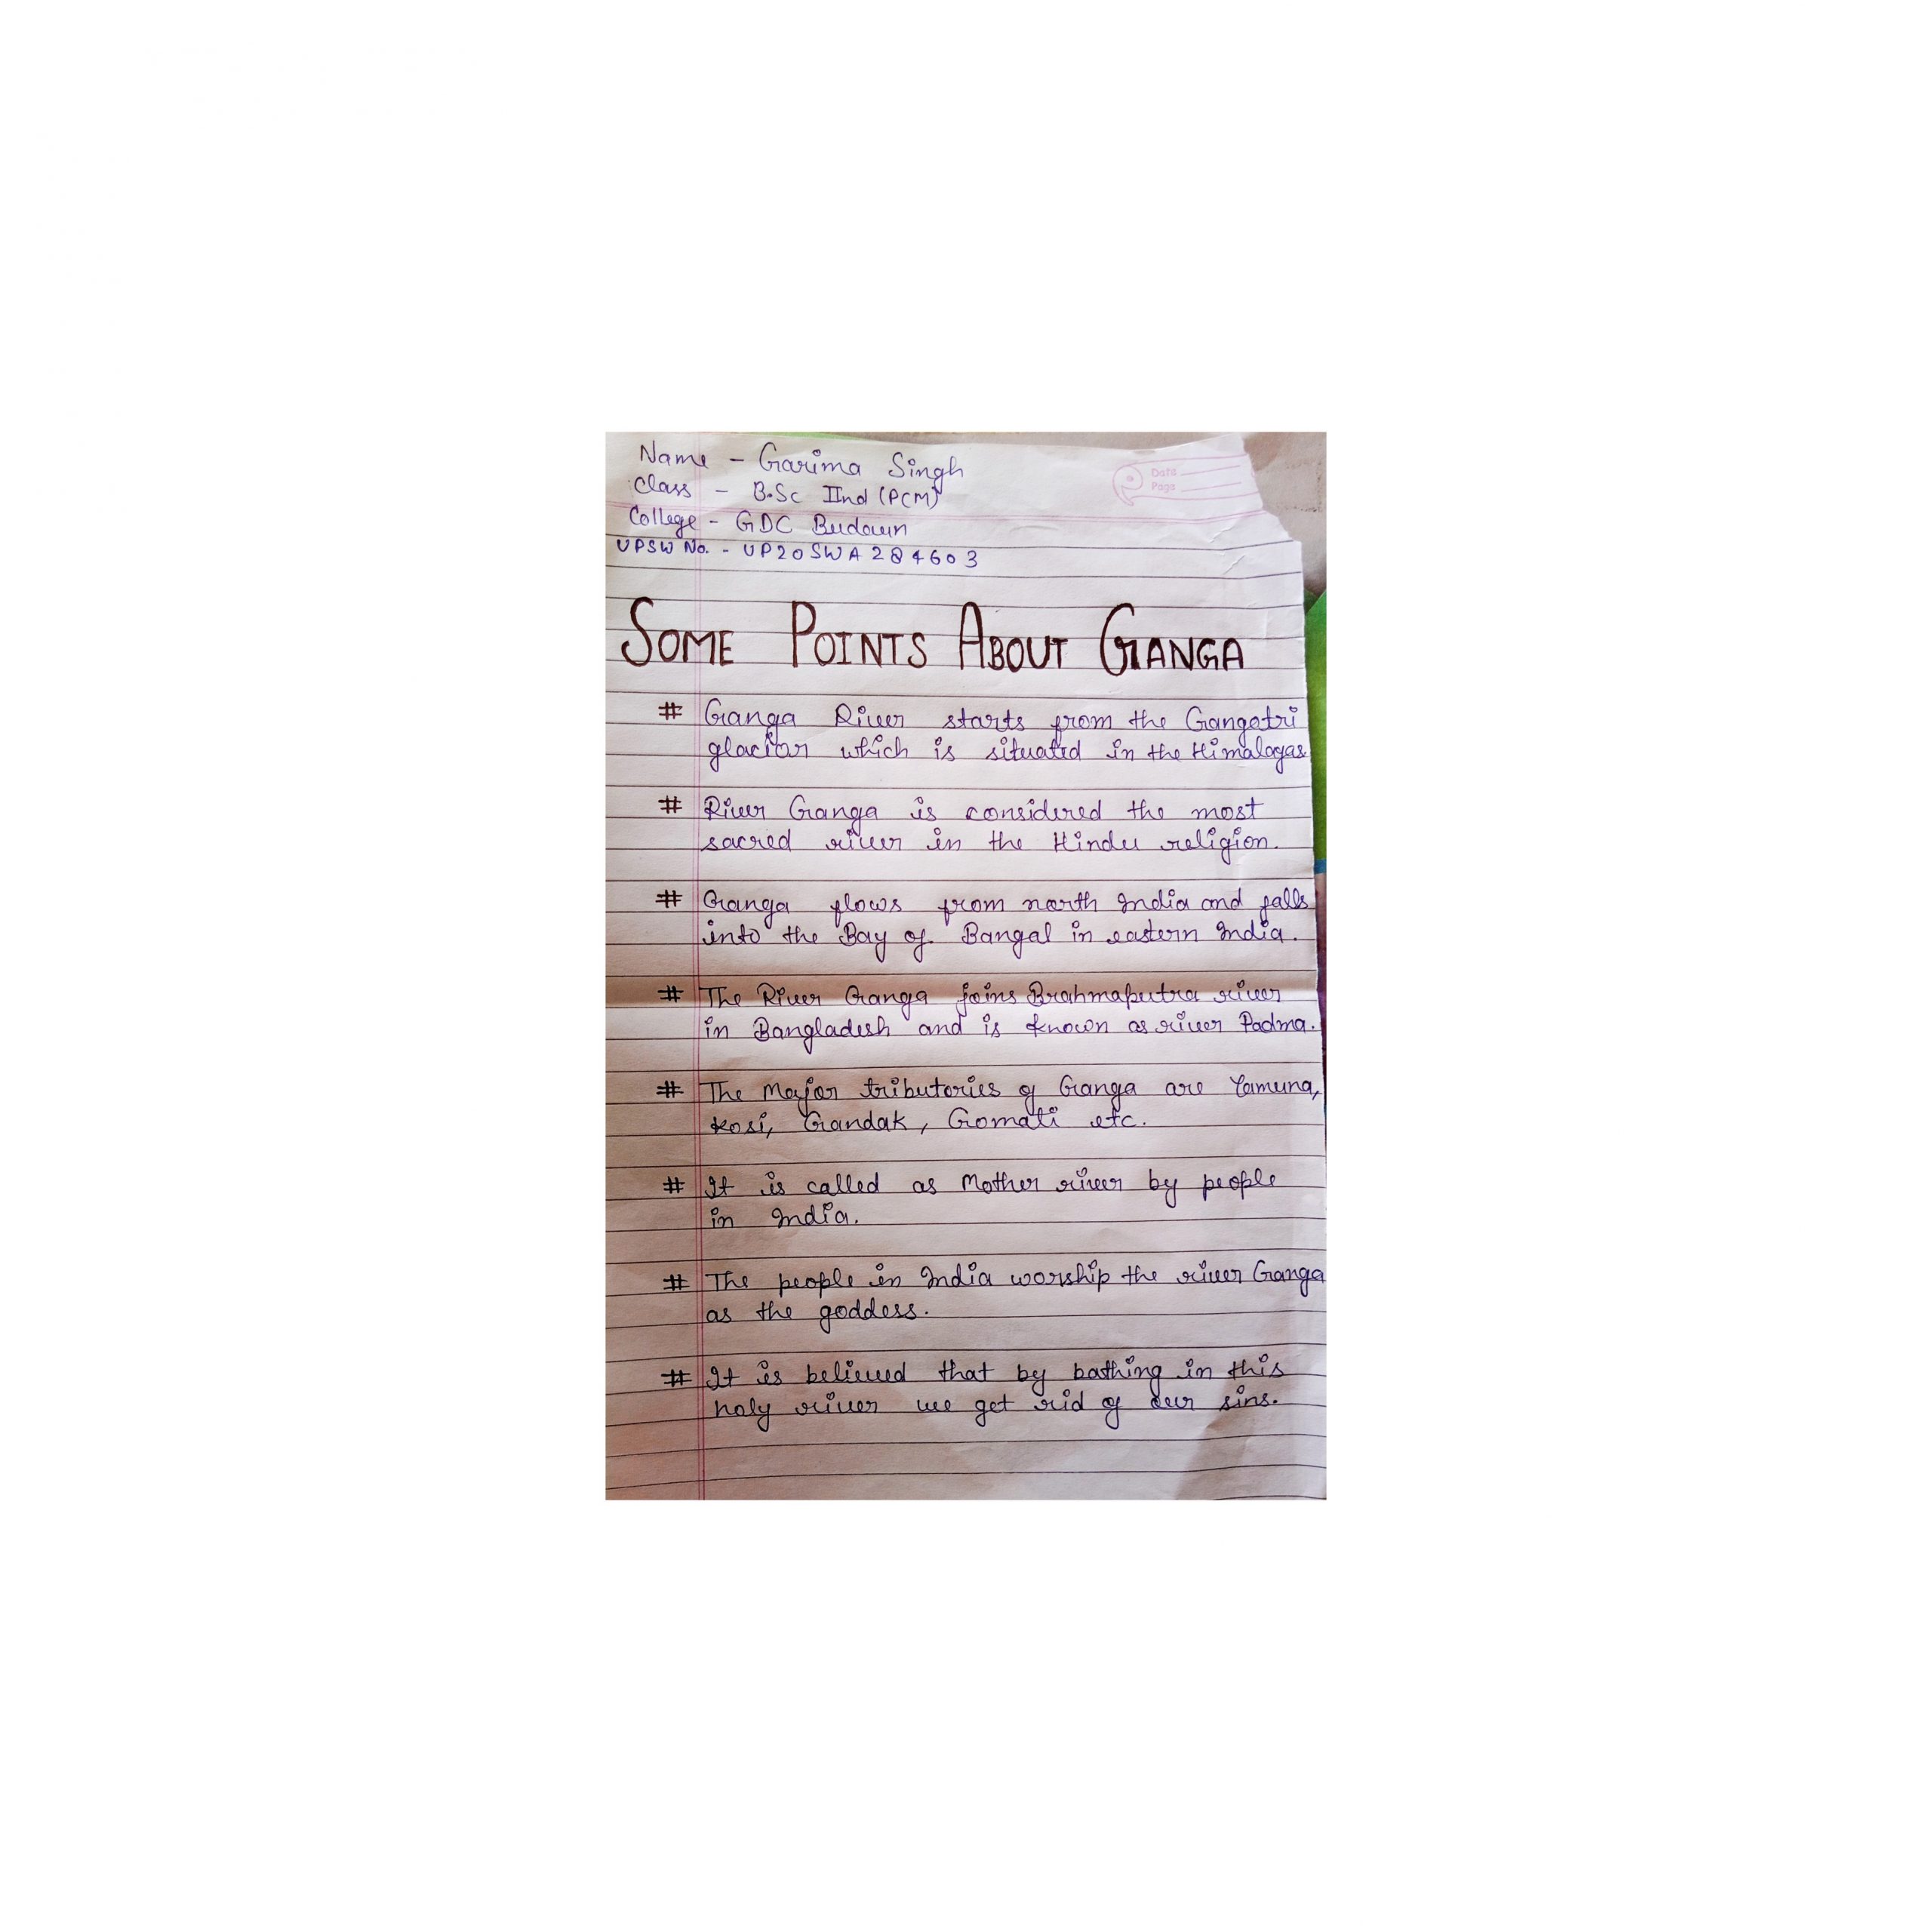 Name - Garima Singh
Class - B.Sc IInd (PCM)
College - GDC Budaun
UPSW No. - UP20SWA284603
Date
Page
SOME POINTS ABOUT GANGA
# Ganga River starts from the Gangotri
glaciar which is situated in the Himalayas
# River Ganga is considered the most
sacred river in the Hindu religion.
# Ganga flows from north India and falls
into the Bay of Bangal in eastern India.
# The River Ganga joins Brahmaputra river
in Bangladesh and is known as river Padma.
# The Major tributories of Ganga are Yamuna,
Kosi, Gandak, Gomati etc.
# It is called as Mother river by people
in India.
# The people in India worship the river Ganga
as the goddess.
# It is believed that by bathing in this
holy river we get rid of our sins.